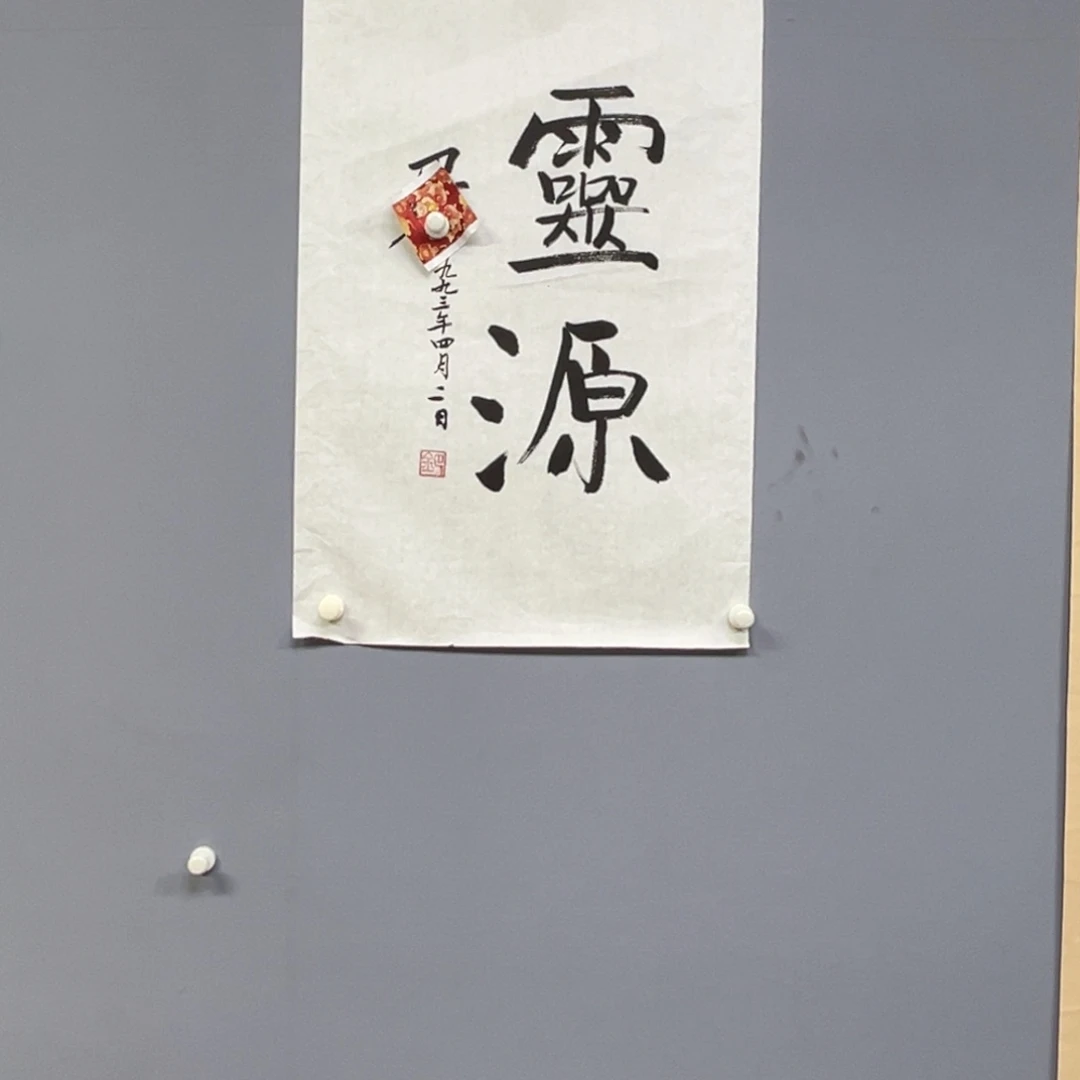 靈源
九九三年四月二日